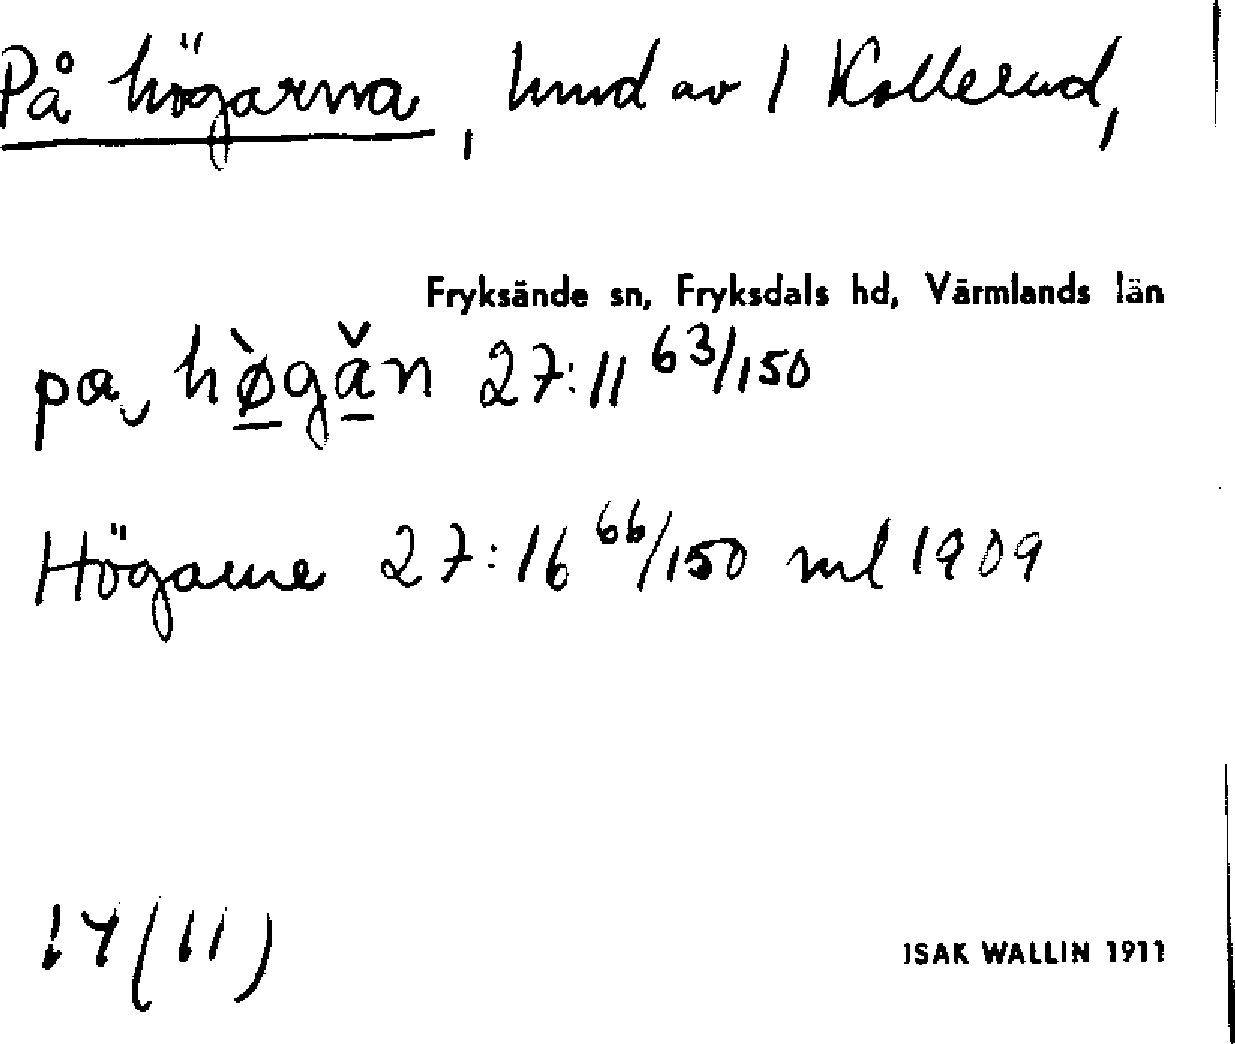 På högarna, hmd av 1 Kollerud,
Fryksände sn, Fryksdals hd, Värmlands län
pa hø̀găn 27:11 63/150
Högarne 27:16 66/150 ml 1909
14(11)
ISAK WALLIN 1911